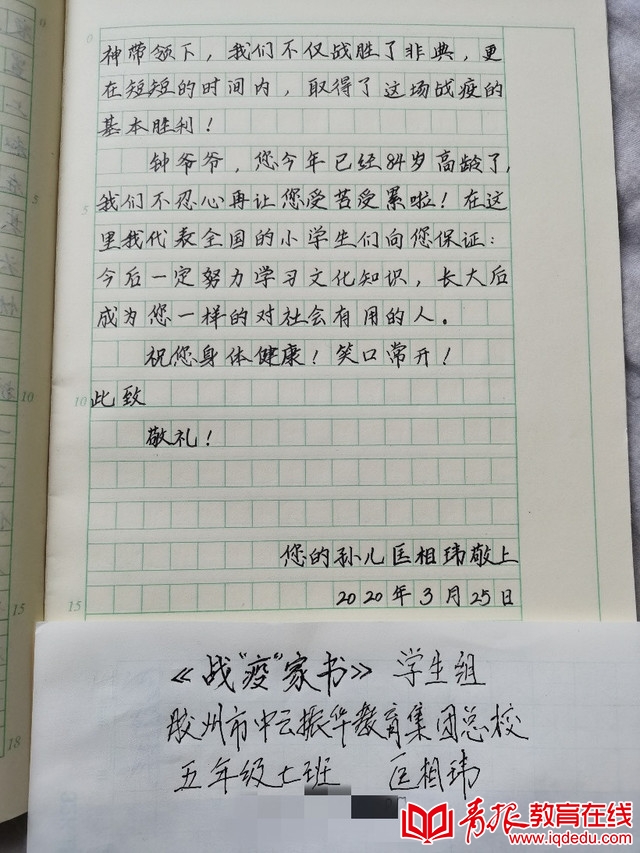 神带领下，我们不仅战胜了非典，更
在短短的时间内，取得了这场战疫的
基本胜利！
钟爷爷，您今年已经84岁高龄了，
我们不忍心再让您受苦受累啦！在这
里我代表全国的小学生们向您保证：
今后一定努力学习文化知识，长大后
成为您一样的对社会有用的人。
祝您身体健康！笑口常开！
此致
敬礼！
您的孙儿匡相玮敬上
2020年3月25日
0
5
10
15
0
5
10
15
18
《战"疫"家书》学生组
胶州市中云振华教育集团总校
五年级七班 匡相玮
青报教育在线
www.iqdedu.com